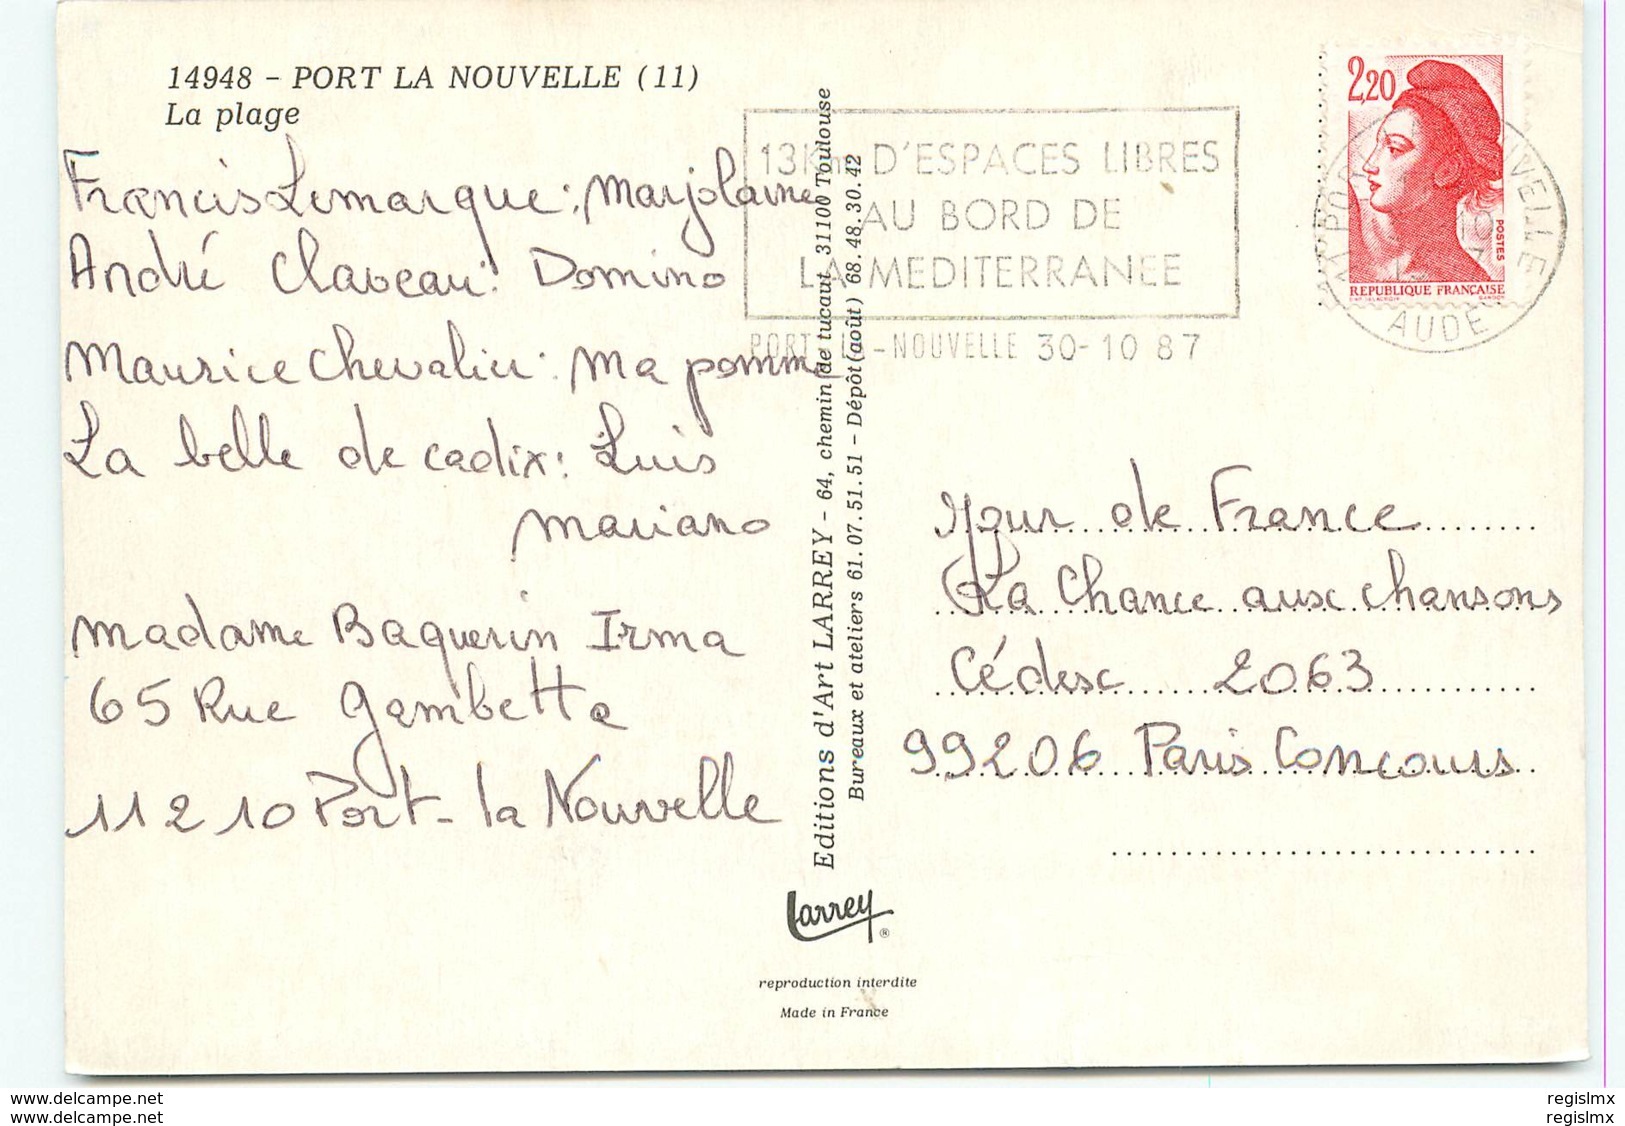 14948 - PORT LA NOUVELLE (11)
La plage
Francis Lemarque : Marjolaine
André Claveau : Domino
Maurice chevalier : Ma pomme
La belle de cadix : Luis
Mariano
Madame Baquerin Irma
65 Rue Gambetta
11210 Port-la Nouvelle
Editions d'Art LARREY - 64, chemin de tucaut 31100 Toulouse
Bureaux et ateliers 61.07.51.51 - Dépôt (août) 68.48.30.42
larrey ®
reproduction interdite
Made in France
13Km D'ESPACES LIBRES
AU BORD DE
LA MEDITERRANEE
PORT-LA-NOUVELLE 30-10 87
2,20
POSTES
REPUBLIQUE FRANÇAISE
AUDE
Jour de France
La Chance aux chansons
Cédex 2063
99206 Paris Concours
regislmx
regislmx
https://www.delcampe.net
https://www.delcampe.net